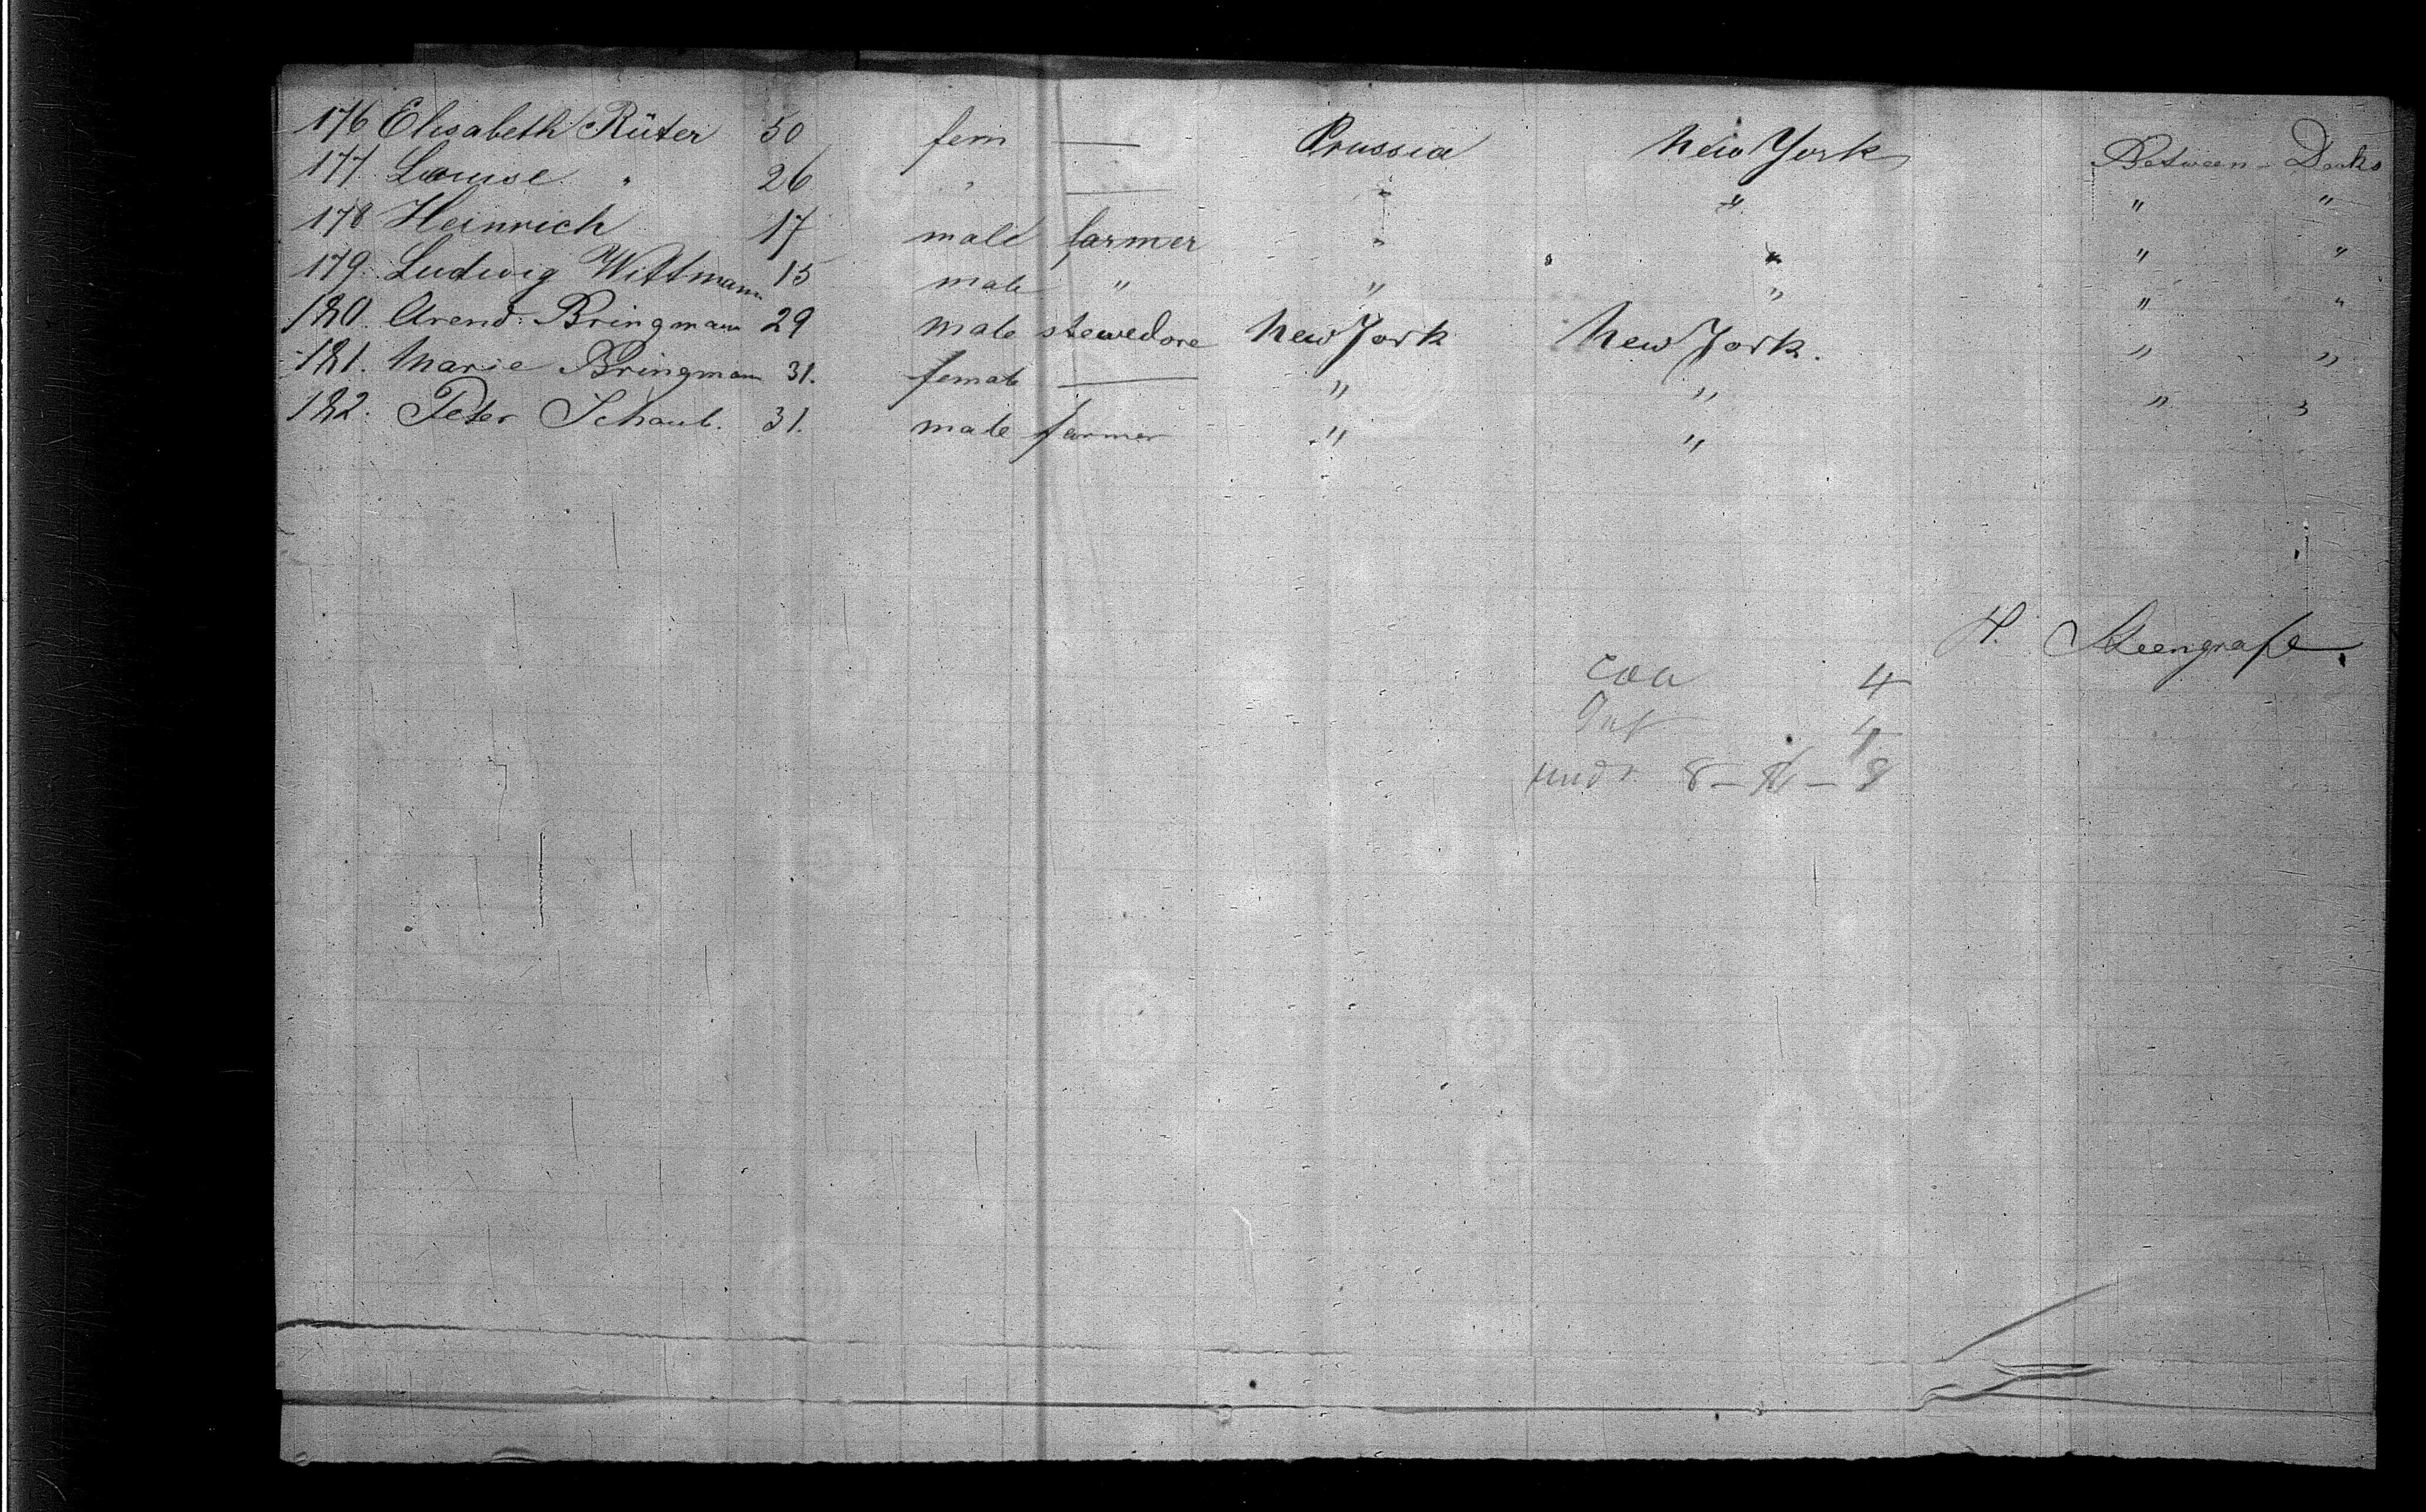 176 Elisabeth Rüter 50 fem — Prussia New York Between-Decks
177 Louise " 26 " — " " " "
178 Heinrich 17 male farmer " " " "
179. Ludwig Wittmann 15 male " " " " "
180. Arend. Bringmann 29 male stewedore New York New York. " "
181. Marie Bringmann 31. female — " " " "
182. Peter Schaub. 31. male farmer " "
H. Steengrafe.
4
4
8 — — 8